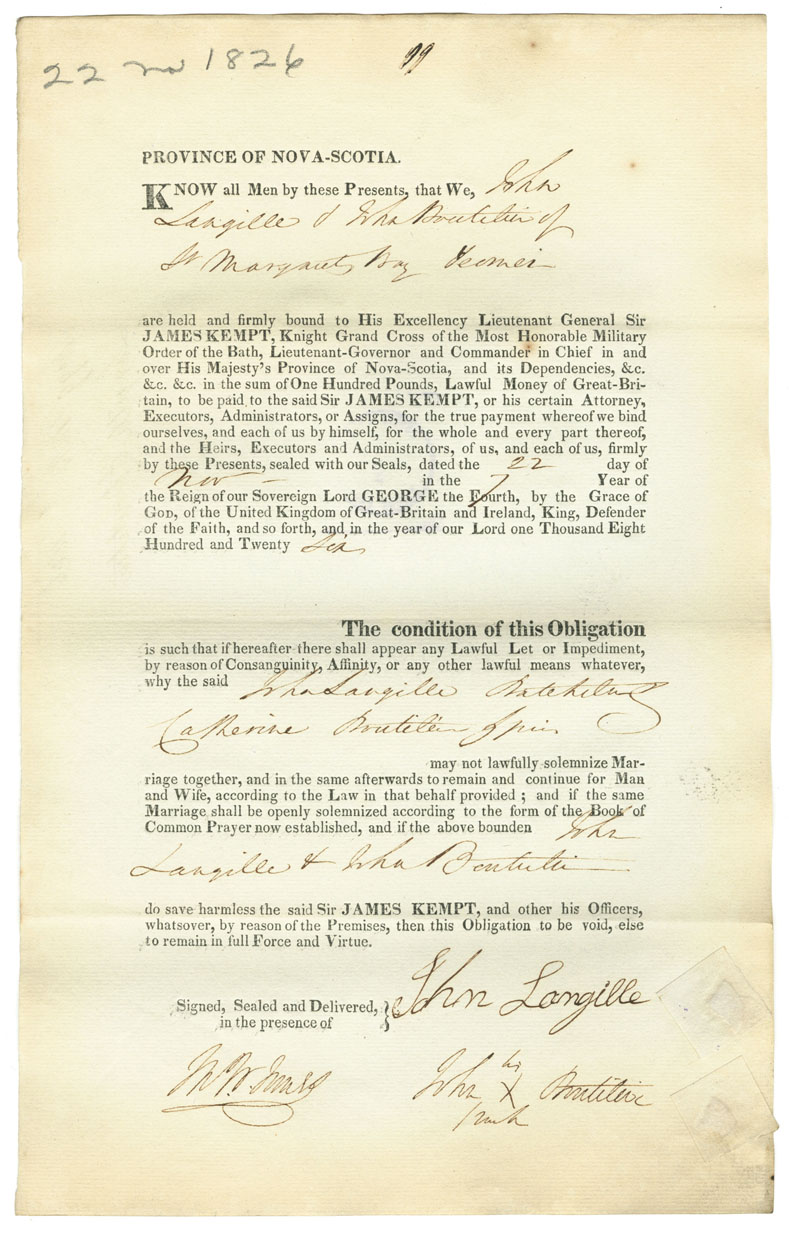 22 no 1826
99
PROVINCE OF NOVA-SCOTIA.
KNOW all Men by these Presents, that We, John
Langille & John Boutilier of
St Margarets Bay Yeomen
are held and firmly bound to His Excellency Lieutenant General Sir
JAMES KEMPT, Knight Grand Cross of the Most Honorable Military
Order of the Bath, Lieutenant-Governor and Commander in Chief in and
over His Majesty's Province of Nova-Scotia, and its Dependencies, &c.
&c. &c. in the sum of One Hundred Pounds, Lawful Money of Great-Bri-
tain, to be paid to the said Sir JAMES KEMPT, or his certain Attorney,
Executors, Administrators, or Assigns, for the true payment whereof we bind
ourselves, and each of us by himself, for the whole and every part thereof,
and the Heirs, Executors and Administrators, of us, and each of us, firmly
by these Presents, sealed with our Seals, dated the 22 day of
Nov in the 7 Year of
the Reign of our Sovereign Lord GEORGE the Fourth, by the Grace of
GOD, of the United Kingdom of Great-Britain and Ireland, King, Defender
of the Faith, and so forth, and in the year of our Lord one Thousand Eight
Hundred and Twenty Six
The condition of this Obligation
is such that if hereafter there shall appear any Lawful Let or Impediment,
by reason of Consanguinity, Affinity, or any other lawful means whatever,
why the said John Langille Batchelor &
Catherine Boutilier Spin
may not lawfully solemnize Mar-
riage together, and in the same afterwards to remain and continue for Man
and Wife, according to the Law in that behalf provided; and if the same
Marriage shall be openly solemnized according to the form of the Book of
Common Prayer now established, and if the above bounden John
Langille & John Boutilier
do save harmless the said Sir JAMES KEMPT, and other his Officers,
whatsover, by reason of the Premises, then this Obligation to be void, else
to remain in full Force and Virtue.
Signed, Sealed and Delivered,
in the presence of
John Langille
his
John X Boutilier
mark